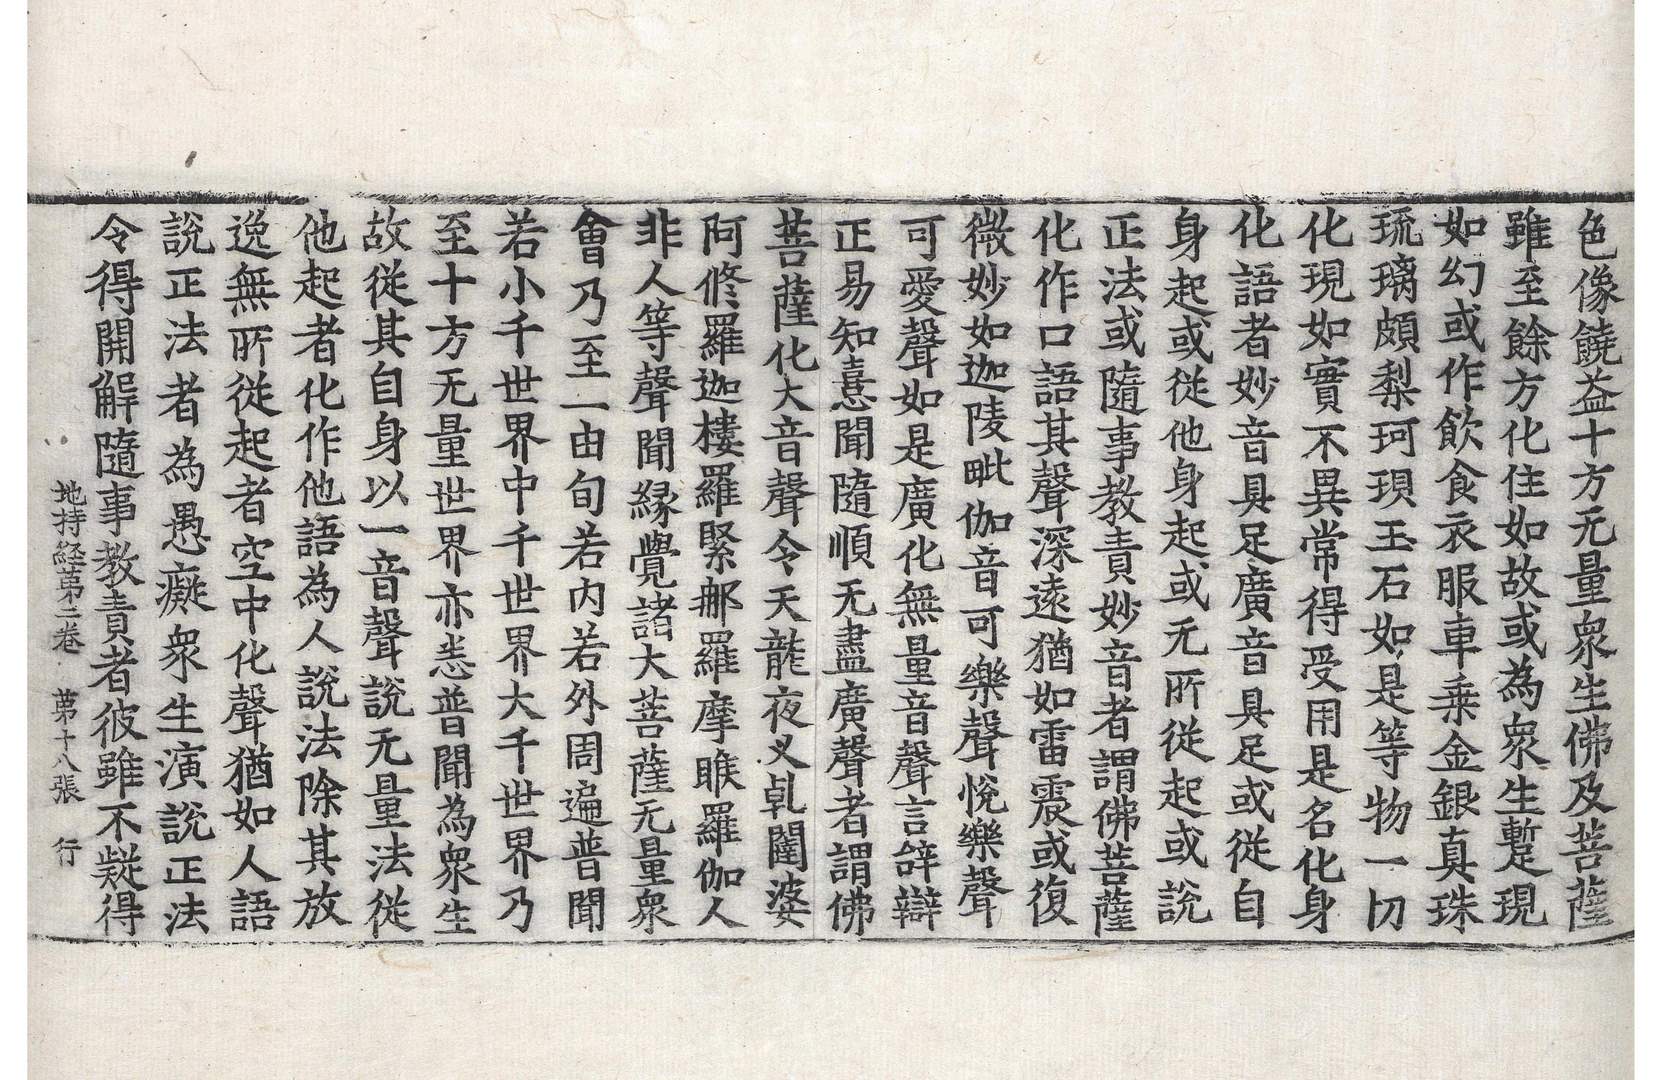 色像饒益十方无量衆生佛及菩薩
雖至餘方化住如故或為衆生蹔現
如幻或作飲食衣服車乗金銀真珠
琉璃頗梨珂珼玉石如是等物一切
化現如實不異常得受用是名化身
化語者妙音具足廣音具足或從自
身起或從他身起或无所從起或說
正法或隨事教責妙音者謂佛菩薩
化作口語其聲深遠猶如雷震或復
微妙如迦陵毗伽音可樂聲悅樂聲
可愛聲如是廣化無量音聲言辝辯
正易知憙聞隨順无盡廣聲者謂佛
菩薩化大音聲令天龍夜义乹闥婆
阿修羅迦樓羅緊那羅摩睺羅伽人
非人等聲聞緣覺諸大菩薩无量衆
會乃至一由旬若内若外周遍普聞
若小千世界中千世界大千世界乃
至十方无量世界亦悉普聞為衆生
故從其自身以一音聲說无量法從
他起者化作他語為人說法除其放
逸無所從起者空中化聲猶如人語
說正法者為愚癡衆生演說正法
令得開解隨事教責者彼雖不癡得
地持経第二卷 第十八張 行